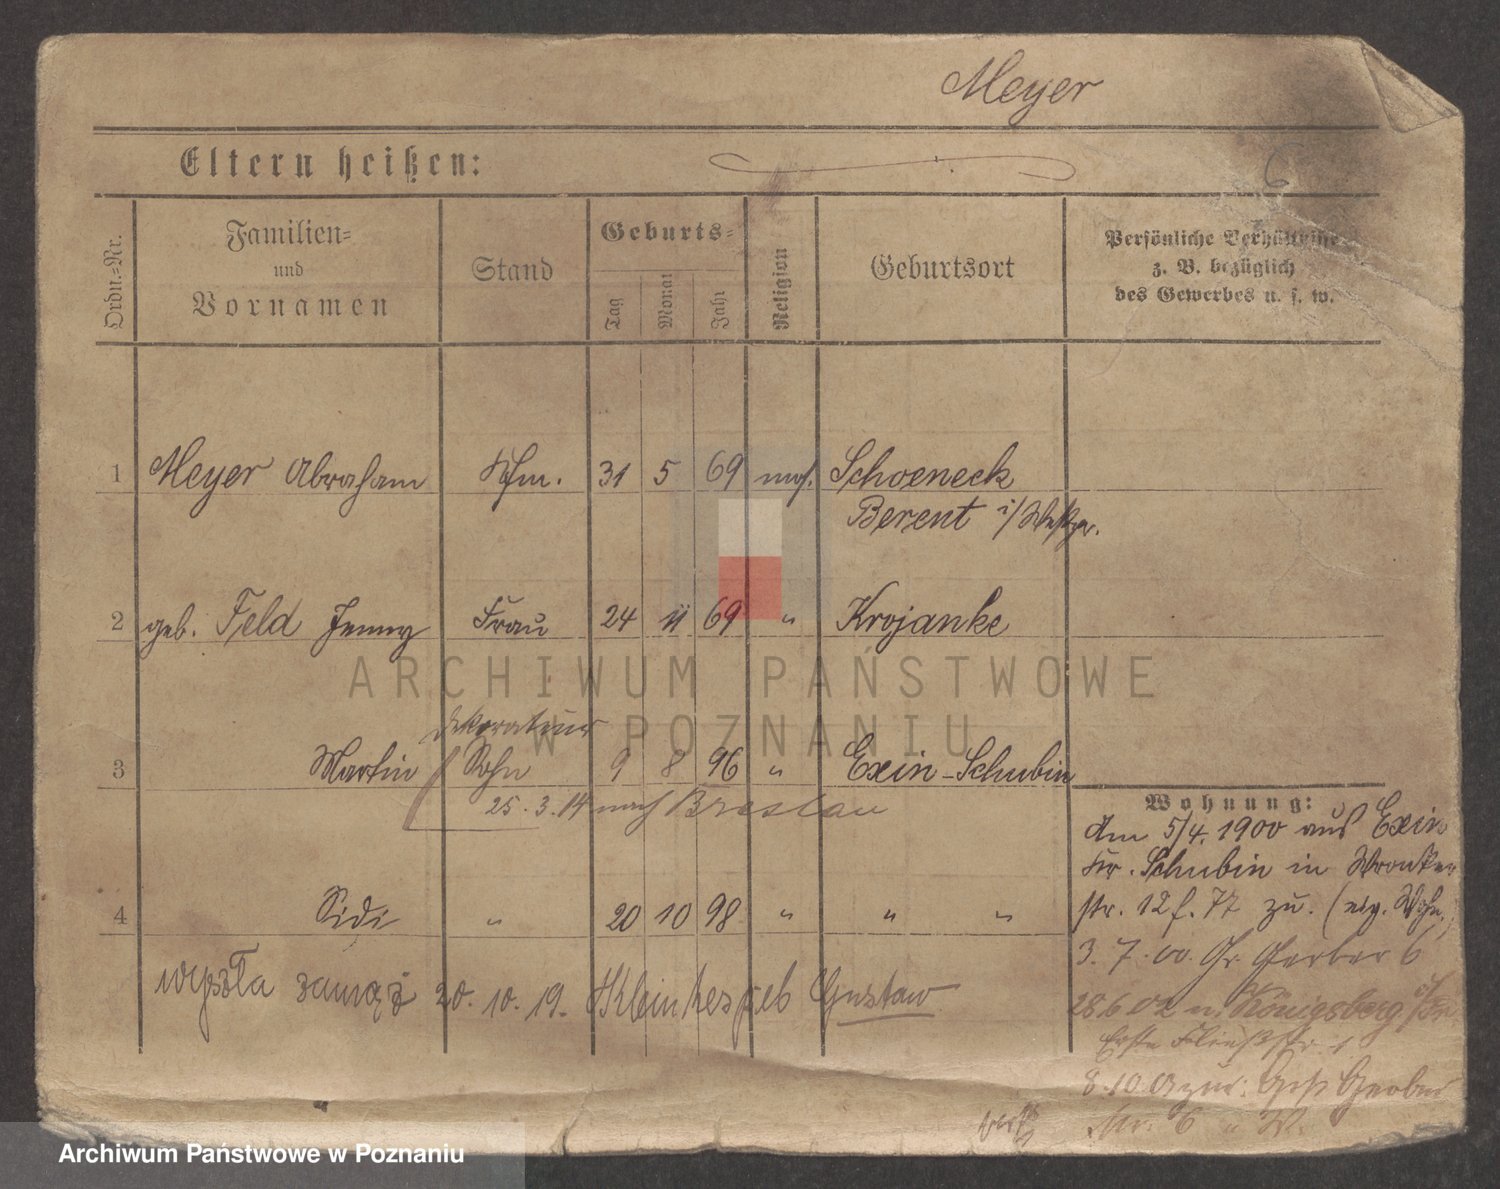 Meyer
Eltern heißen:
6
Ordn.-Nr.
Familien-
und
Vornamen
Stand
Geburts-
Tag
Monat
Jahr
Religion
Geburtsort
Persönliche Verhältnisse
z. B. bezüglich
des Gewerbes u. s. w.
1 Meyer Abraham Kfm. 31 5 69 mos. Schoeneck
Berent i/Westpr.
2 geb. Feld Jenny Frau 24 11 69 " Krojanke
ARCHIWUM PAŃSTWOWE
W POZNANIU
Dekorateur
3 Martin Sohn 9 8 96 " Exin-Schubin
25.3.14 nach Breslau
4 Sidi " 20 10 98 " " "
wyszła zamąż 20. 10. 19. Gustaw
Wohnung:
Am 5/4. 1900 aus Exin
Kr. Schubin in Wronker
str. 12 f. 77 zu. (eig. Wohn.)
3. 7. 00. Gr. Gerber 6
28 6 02 n. Königsberg i/Pr
Erste
8.10 zur. Gerber
str. 6
Archiwum Państwowe w Poznaniu